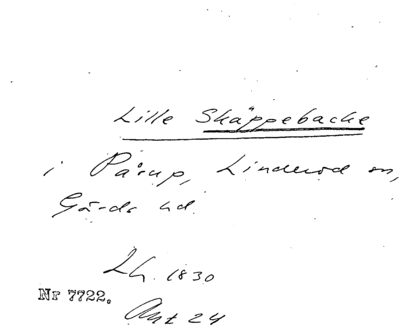 Lille Skäppebacke
i Pårup, Linderöd sn,
Gärds hd.
Lh. 1830
Nr 7722.
Akt 24